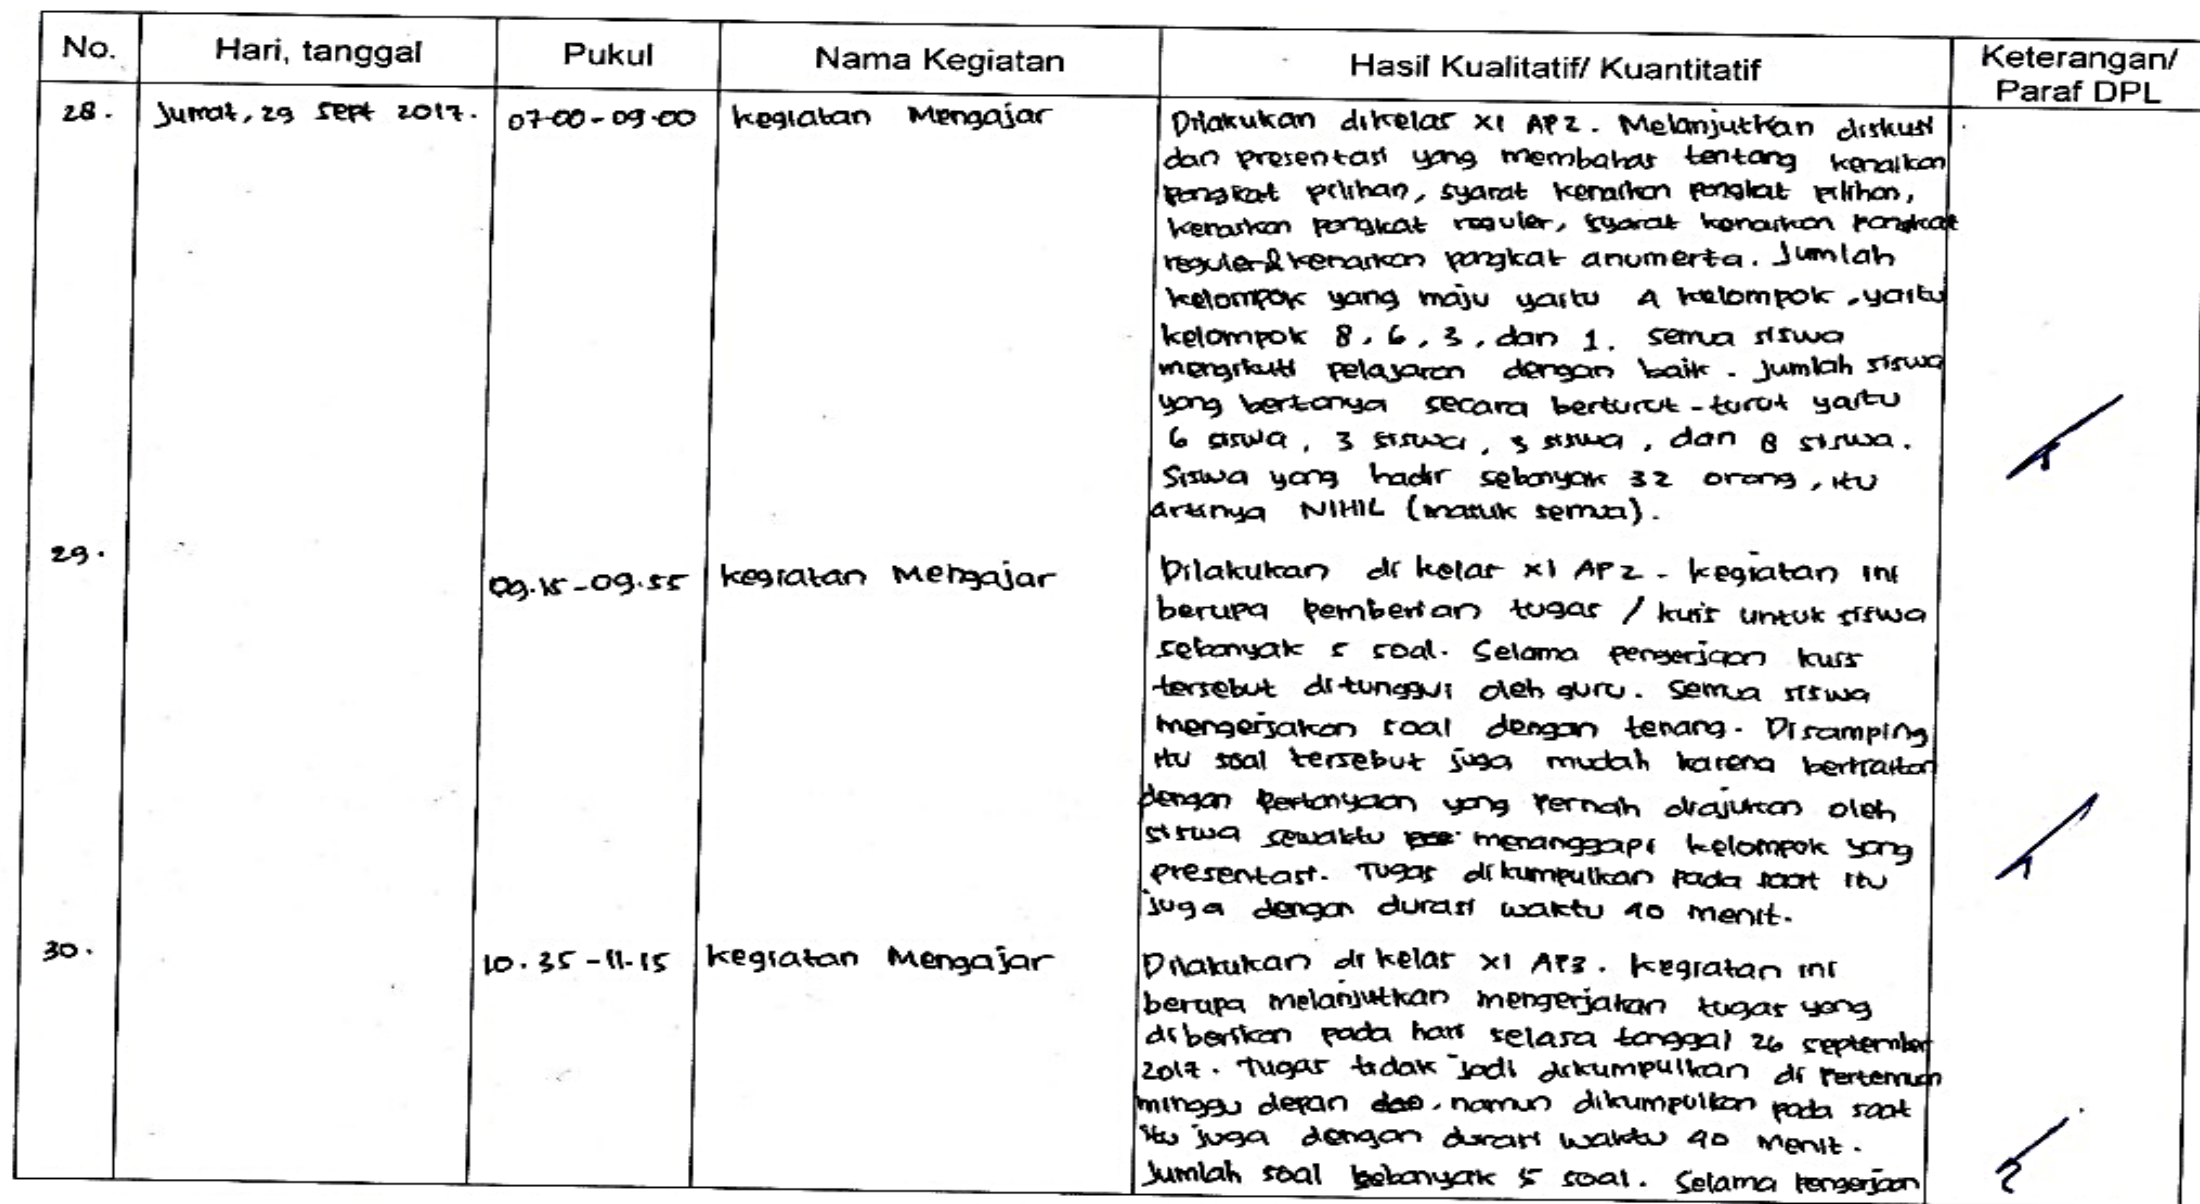 No. Hari, tanggal Pukul Nama Kegiatan Hasil Kualitatif/ Kuantitatif Keterangan/
Paraf DPL
28. Jumat, 29 Sept 2017. 07.00-09.00 kegiatan Mengajar Dilakukan dikelas XI AP2. Melanjutkan diskusi
dan presentasi yang membahas tentang kenaikan
pangkat pilihan, syarat kenaikan pangkat pilihan,
kenaikan pangkat reguler, syarat kenaikan pangkat
reguler & kenaikan pangkat anumerta. Jumlah
kelompok yang maju yaitu 4 kelompok, yaitu
kelompok 8, 6, 3, dan 1. Semua siswa
mengikuti pelajaran dengan baik. Jumlah siswa
yang bertanya secara berturut-turut yaitu
6 siswa, 3 siswa, siswa, dan 8 siswa.
Siswa yang hadir sebanyak 32 orang, itu
artinya NIHIL (masuk semua).
29. 09.15-09.55 kegiatan Mengajar Dilakukan di kelas XI AP2. kegiatan ini
berupa pemberian tugas / kuis untuk siswa
sebanyak 5 soal. Selama pengerjaan kuis
tersebut ditunggui oleh guru. Semua siswa
mengerjakan soal dengan tenang. Disamping
itu soal tersebut juga mudah karena berkaitan
dengan pertanyaan yang pernah diajukan oleh
siswa sewaktu menanggapi kelompok yang
presentasi. Tugas dikumpulkan pada saat itu
juga dengan durasi waktu 40 menit.
30. 10.35-11.15 kegiatan Mengajar Dilakukan di kelas XI AP3. Kegiatan ini
berupa melanjutkan mengerjakan tugas yang
diberikan pada hari selasa tanggal 26 september
2017. Tugas tidak jadi dikumpulkan di Pertemuan
minggu depan, namun dikumpulkan pada saat
itu juga dengan durasi waktu 40 Menit.
Jumlah soal sebanyak 5 soal. Selama pengerjaan